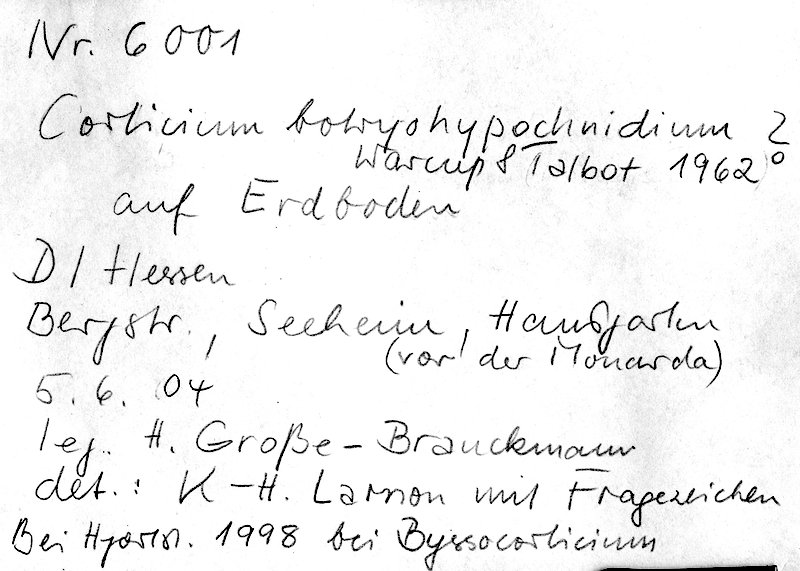 Nr. 6001
Corticium botryohypochnidium ?
Warcup & Talbot 1962
auf Erdboden
D / Hessen
Bergstr., Seeheim, Hausgarten
(vor der Monarda)
5.6.04
leg. H. Große-Brauckmann
det.: K-H. Larsson mit Fragezeichen
Bei Hjortst. 1998 bei Byssocorticium